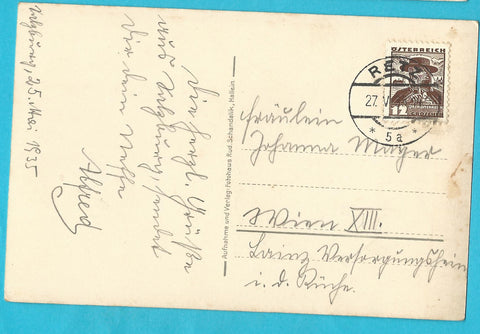 Salzburg, 25. Mai 1935
Die herzl. Grüße
aus Salzburg sendet
Dir dein Neffe
Alfred
Aufnahme und Verlag: Fotohaus Rud. Schandelik, Hallein
ÖSTERREICH
12
RETZ
27. V
* 5a *
Fräulein
Johanna Mayer
Wien XIII.
Lainz Versorgungsheim
i. d. Küche.